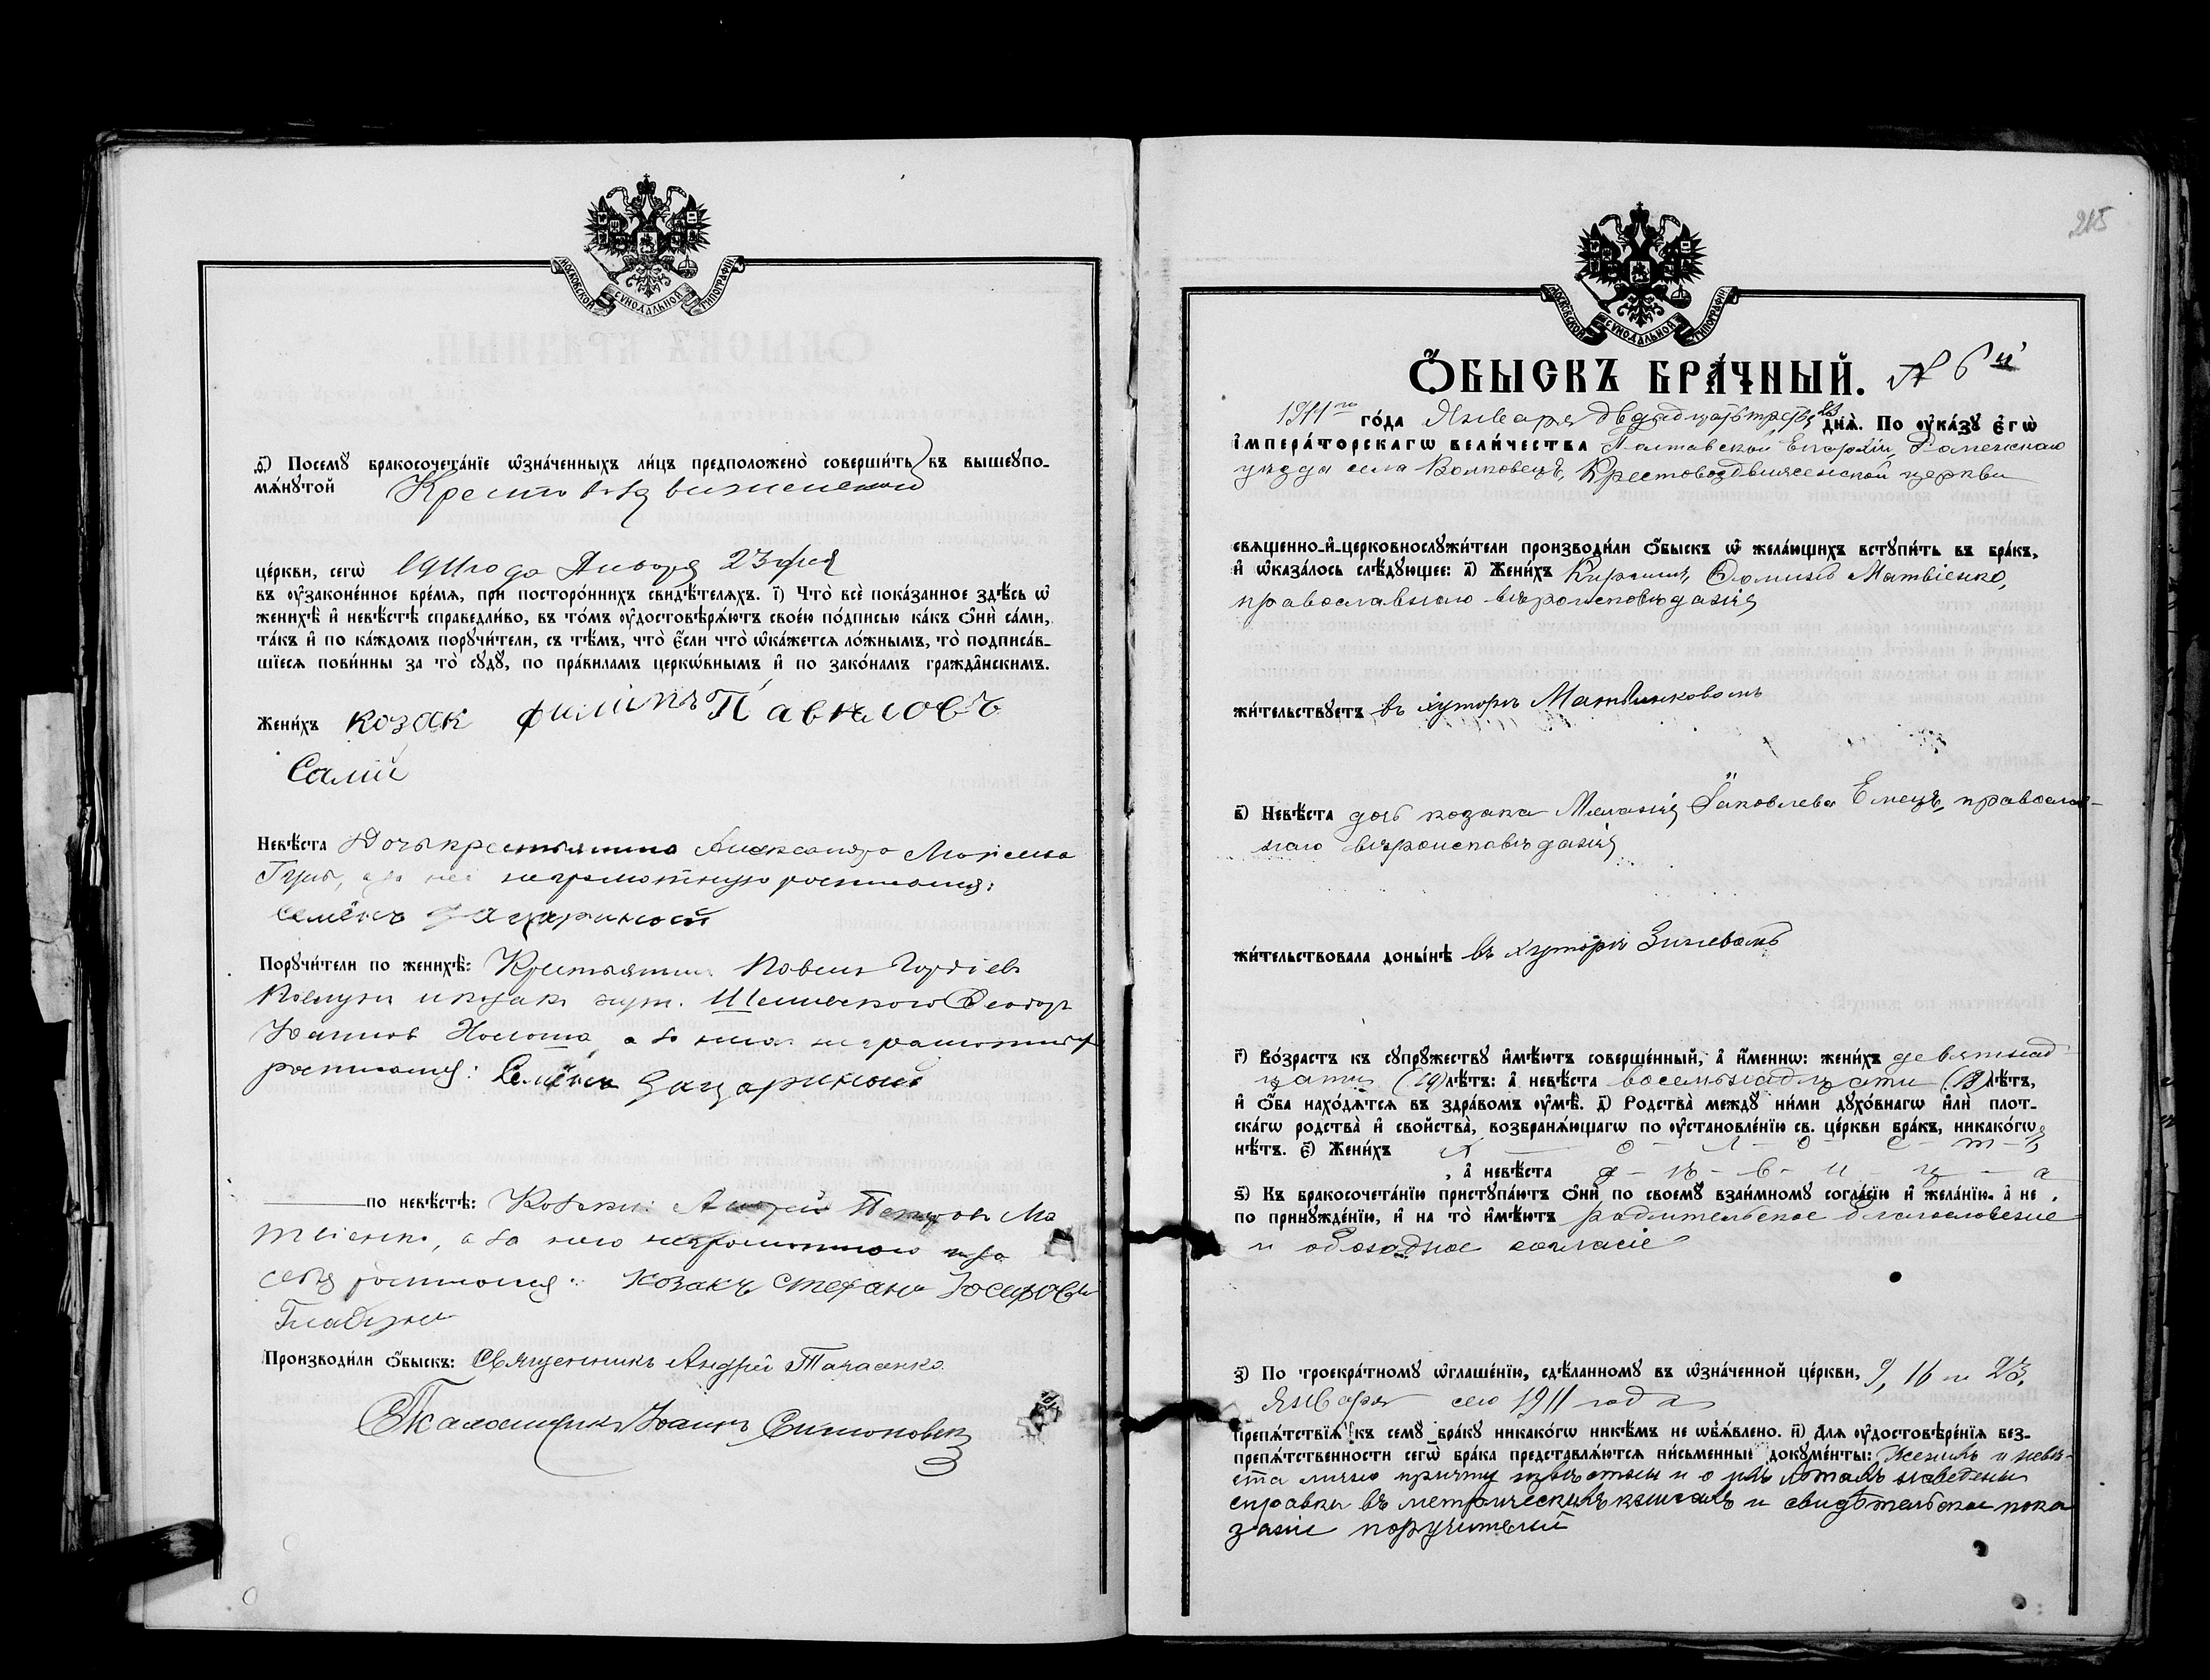 МОСКОВСКОЙ СУНОДАЛЬНОЙ ТИПОГРАФІИ
д҃) Посемꙋ бракосочета́нїе ѡ҆зна́ченныхъ ли́цъ предположено̀ соверши́ть въ вышеꙋпо-
мѧ́нꙋтой Крестовоздвиженской
це́ркви, сегѡ̀ 1911 года Января 23 дня
въ ᲂу҆законе́нное вре́мѧ, при посторо́ннихъ свидѣ́телѧхъ. і҃) Что̀ всѐ пока́занное здѣ́сь ѡ҆
женихѣ̀ и҆ невѣ́стѣ справедли́во, въ то́мъ ᲂу҆достовѣрѧ́ютъ свое́ю по́дписью ка́къ ѻ҆нѝ са́ми,
та́къ и҆ по ка́ждомъ порꙋчи́тели, съ тѣ́мъ, что̀ є҆́сли что̀ ѡ҆ка́жетсѧ ло́жнымъ, то̀ подписа́в-
шїесѧ пови́нны за то̀ сꙋдꙋ̀, по пра́виламъ церкѡ́внымъ и҆ по зако́намъ гражда̑нскимъ.
Жени́хъ козак Филипъ Павловъ
Салий
Невѣ́ста Дочь крестьянина Александра Моисеева
неграмотную росписался:
Семёнъ
Порꙋчи́тели по женихѣ̀: Крестьянинъ Павелъ Гордіевъ
и козакъ хут. Феодоръ
Іоанновъ а за них неграмотных
росписался: Семёнъ
по невѣ́стѣ: Козаки: Андрей Петровъ Ма
твіенко, а за него неграмотного и за
себя росписался: козакъ Стефанъ Іосифовъ
Гладунъ
Производи́ли ѻ҆́быскъ: Священникъ Андрей Тарасенко
Псаломщикъ Іоаннъ Симоновскій
215
МОСКОВСКОЙ СУНОДАЛЬНОЙ ТИПОГРАФІИ
Ѻ҆́БЫСКЪ БРА́ЧНЫЙ. № 6й
1911го го́да Января двадцать третья 23 днѧ̀. По ᲂу҆ка́зꙋ є҆гѡ̀
і҆мпера́торскагѡ вели́чества Полтавской Епархіи, Роменскаго
уѣзда села Волковецъ, Крестовоздвиженской церкви
свѧщенно-и҆-церковнослꙋжи́тели производи́ли ѻ҆́быскъ ѡ҆ жела́ющихъ встꙋпи́ть въ бра́къ,
и҆ ѡ҆каза́лось слѣ́дꙋющее: а҃) Жени́хъ Кириллъ Ѳоминъ Матвіенко,
православнаго вѣроисповѣданія
жи́тельствꙋетъ въ хуторѣ Матвіенковомъ
в҃) Невѣ́ста дочь козака Меланія Іаковлева Емецъ, православ-
наго вѣроисповѣданія
жи́тельствовала доны́нѣ въ хуторѣ Зинцевомъ
г҃) Во́зрастъ къ сꙋпрꙋ́жествꙋ и҆мѣ́ютъ соверше́нный, а҆ и҆́менно: жени́хъ девятнад
цати (19) лѣ́тъ: а҆ невѣ́ста восемьнадцати (18) лѣ́тъ,
и҆ ѻ҆́ба нахо́дѧтсѧ въ здра́вомъ ᲂу҆мѣ̀. д҃) Родства̀ междꙋ ни́ми дꙋхо́внагѡ и҆лѝ плот-
ска́гѡ родства̀ и҆ сво́йства, возбранѧ́ющагѡ по ᲂу҆становле́нїю св. це́ркви бра́къ, никако́гѡ
нѣ́тъ. є҃) Жени́хъ х — о – л – о – с – т – ъ
, а҆ невѣ́ста д – ѣ – в – и – ц – а
ѕ҃) Къ бракосочета́нїю пристꙋпа́ютъ ѻ҆нѝ по своемꙋ̀ взаи́мномꙋ согла́сїю и҆ жела́нїю, а҆ не
по принꙋжде́нїю, и҆ на то̀ и҆мѣ́ютъ родительское благословеніе
и обоюдное согласіе
з҃) По троекра́тномꙋ ѡ҆глаше́нїю, сдѣ́ланномꙋ въ ѡ҆зна́ченной це́ркви, 9, 16 и 23,
Января сего 1911 года
препѧ́тствїѧ къ семꙋ̀ бра́кꙋ никако́гѡ никѣ́мъ не ѡ҆б̾ѧ́влено. и҃) Длѧ ᲂу҆достовѣре́нїѧ без-
препѧ́тственности сегѡ̀ бра́ка представлѧ́ютсѧ пи́сьменные докꙋме́нты: Женихъ и невѣ-
ста лично причту извѣстны и о ихъ лѣтахъ наведены
справки въ метрическихъ книгахъ и свидѣтельское пока
заніе поручителей